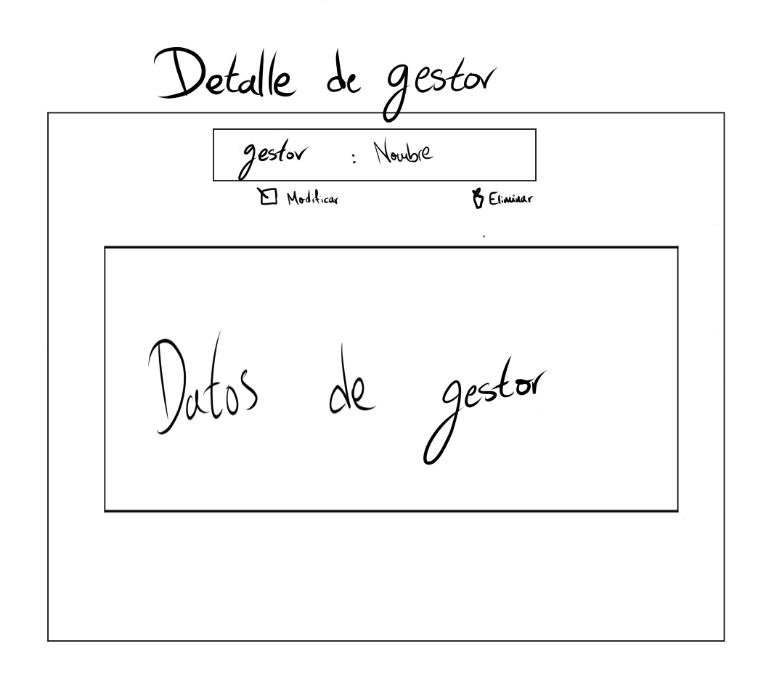 Detalle de gestor
gestor : Nombre
Modificar Eliminar
Datos de gestor